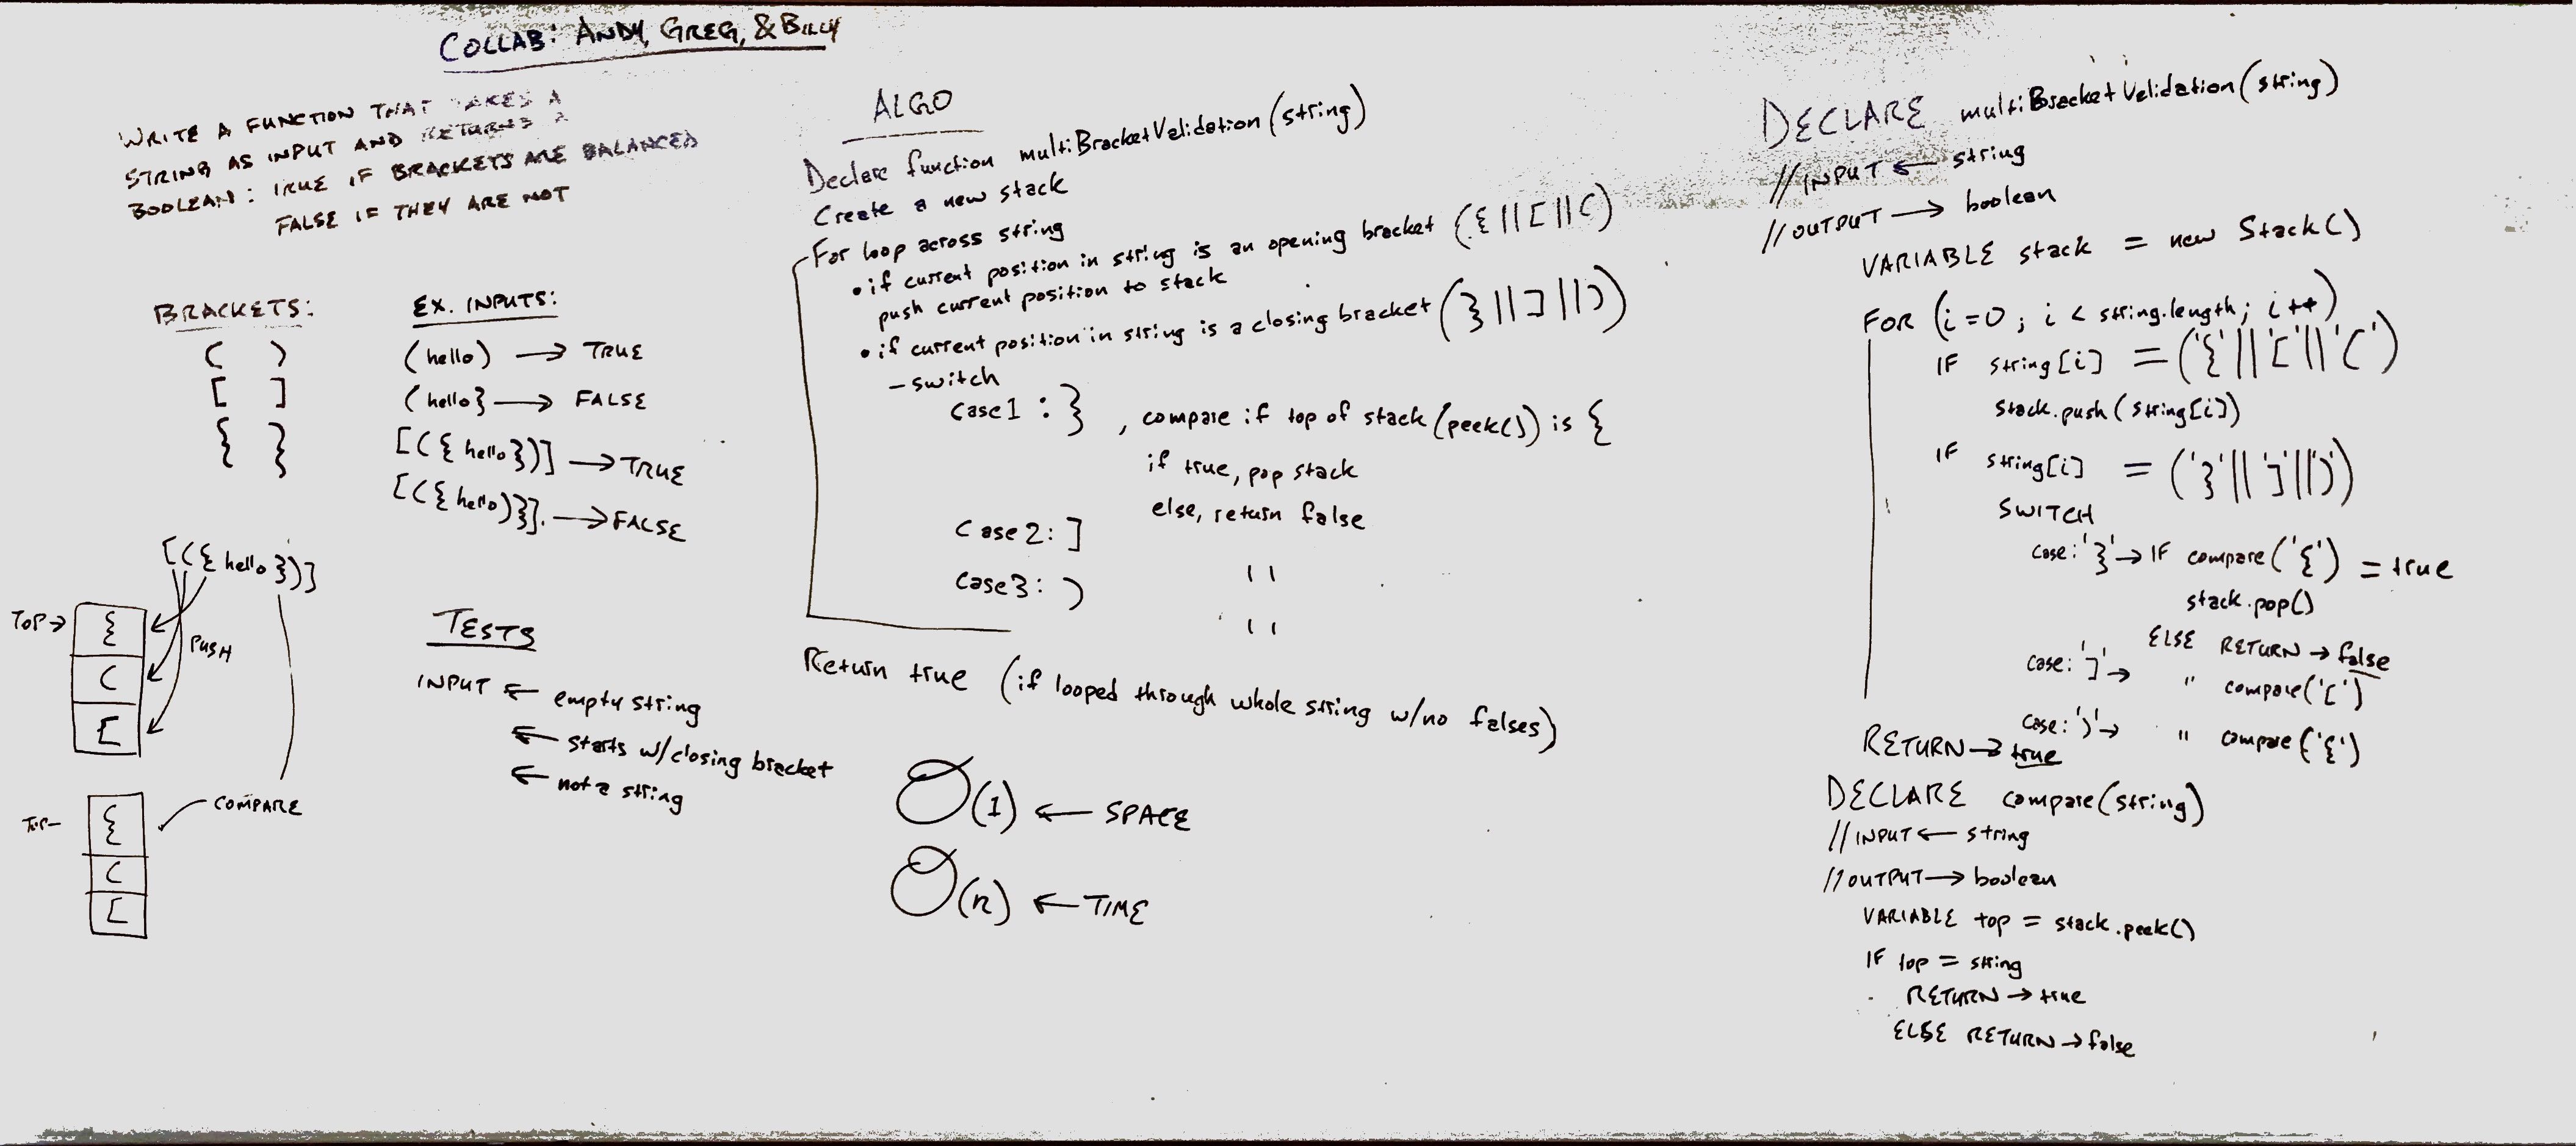 COLLAB: ANDY, GREG, & BILLY
WRITE A FUNCTION THAT TAKES A
STRING AS INPUT AND RETURNS A
BOOLEAN: TRUE IF BRACKETS ARE BALANCED
FALSE IF THEY ARE NOT
BRACKETS:
( )
[ ]
{ }
EX. INPUTS:
(hello) → TRUE
(hello} → FALSE
[({hello})] → TRUE
[({hello)}]. → FALSE
[({hello})]
TOP →
{
(
[
PUSH
TOP-
{
(
[
COMPARE
TESTS
INPUT ← empty string
← starts w/closing bracket
← not a string
ALGO
Declare function multiBracketValidation(string)
Create a new stack
For loop across string
• if current position in string is an opening bracket ({ || [ || ()
push current position to stack
• if current position in string is a closing bracket (} || ] || ))
- switch
case1 : } , compare if top of stack (peek()) is {
if true, pop stack
else, return false
Case2: ]
" 
Case3: )
"
Return true (if looped through whole string w/no falses)
O(1) ← SPACE
O(n) ← TIME
DECLARE multiBracketValidation(string)
// INPUT ← string
// OUTPUT → boolean
VARIABLE stack = new Stack()
FOR (i=0; i < string.length; i++)
IF string[i] = ('{' || '[' || '(')
stack.push(string[i])
IF string[i] = ('}' || ']' || ')')
SWITCH
case: '}' → IF compare('{') = true
stack.pop()
ELSE RETURN → false
case: ']' → " compare('[')
case: ')' → " compare('{')
RETURN → true
DECLARE compare(string)
// INPUT ← string
// OUTPUT → boolean
VARIABLE top = stack.peek()
IF top = string
RETURN → true
ELSE RETURN → false